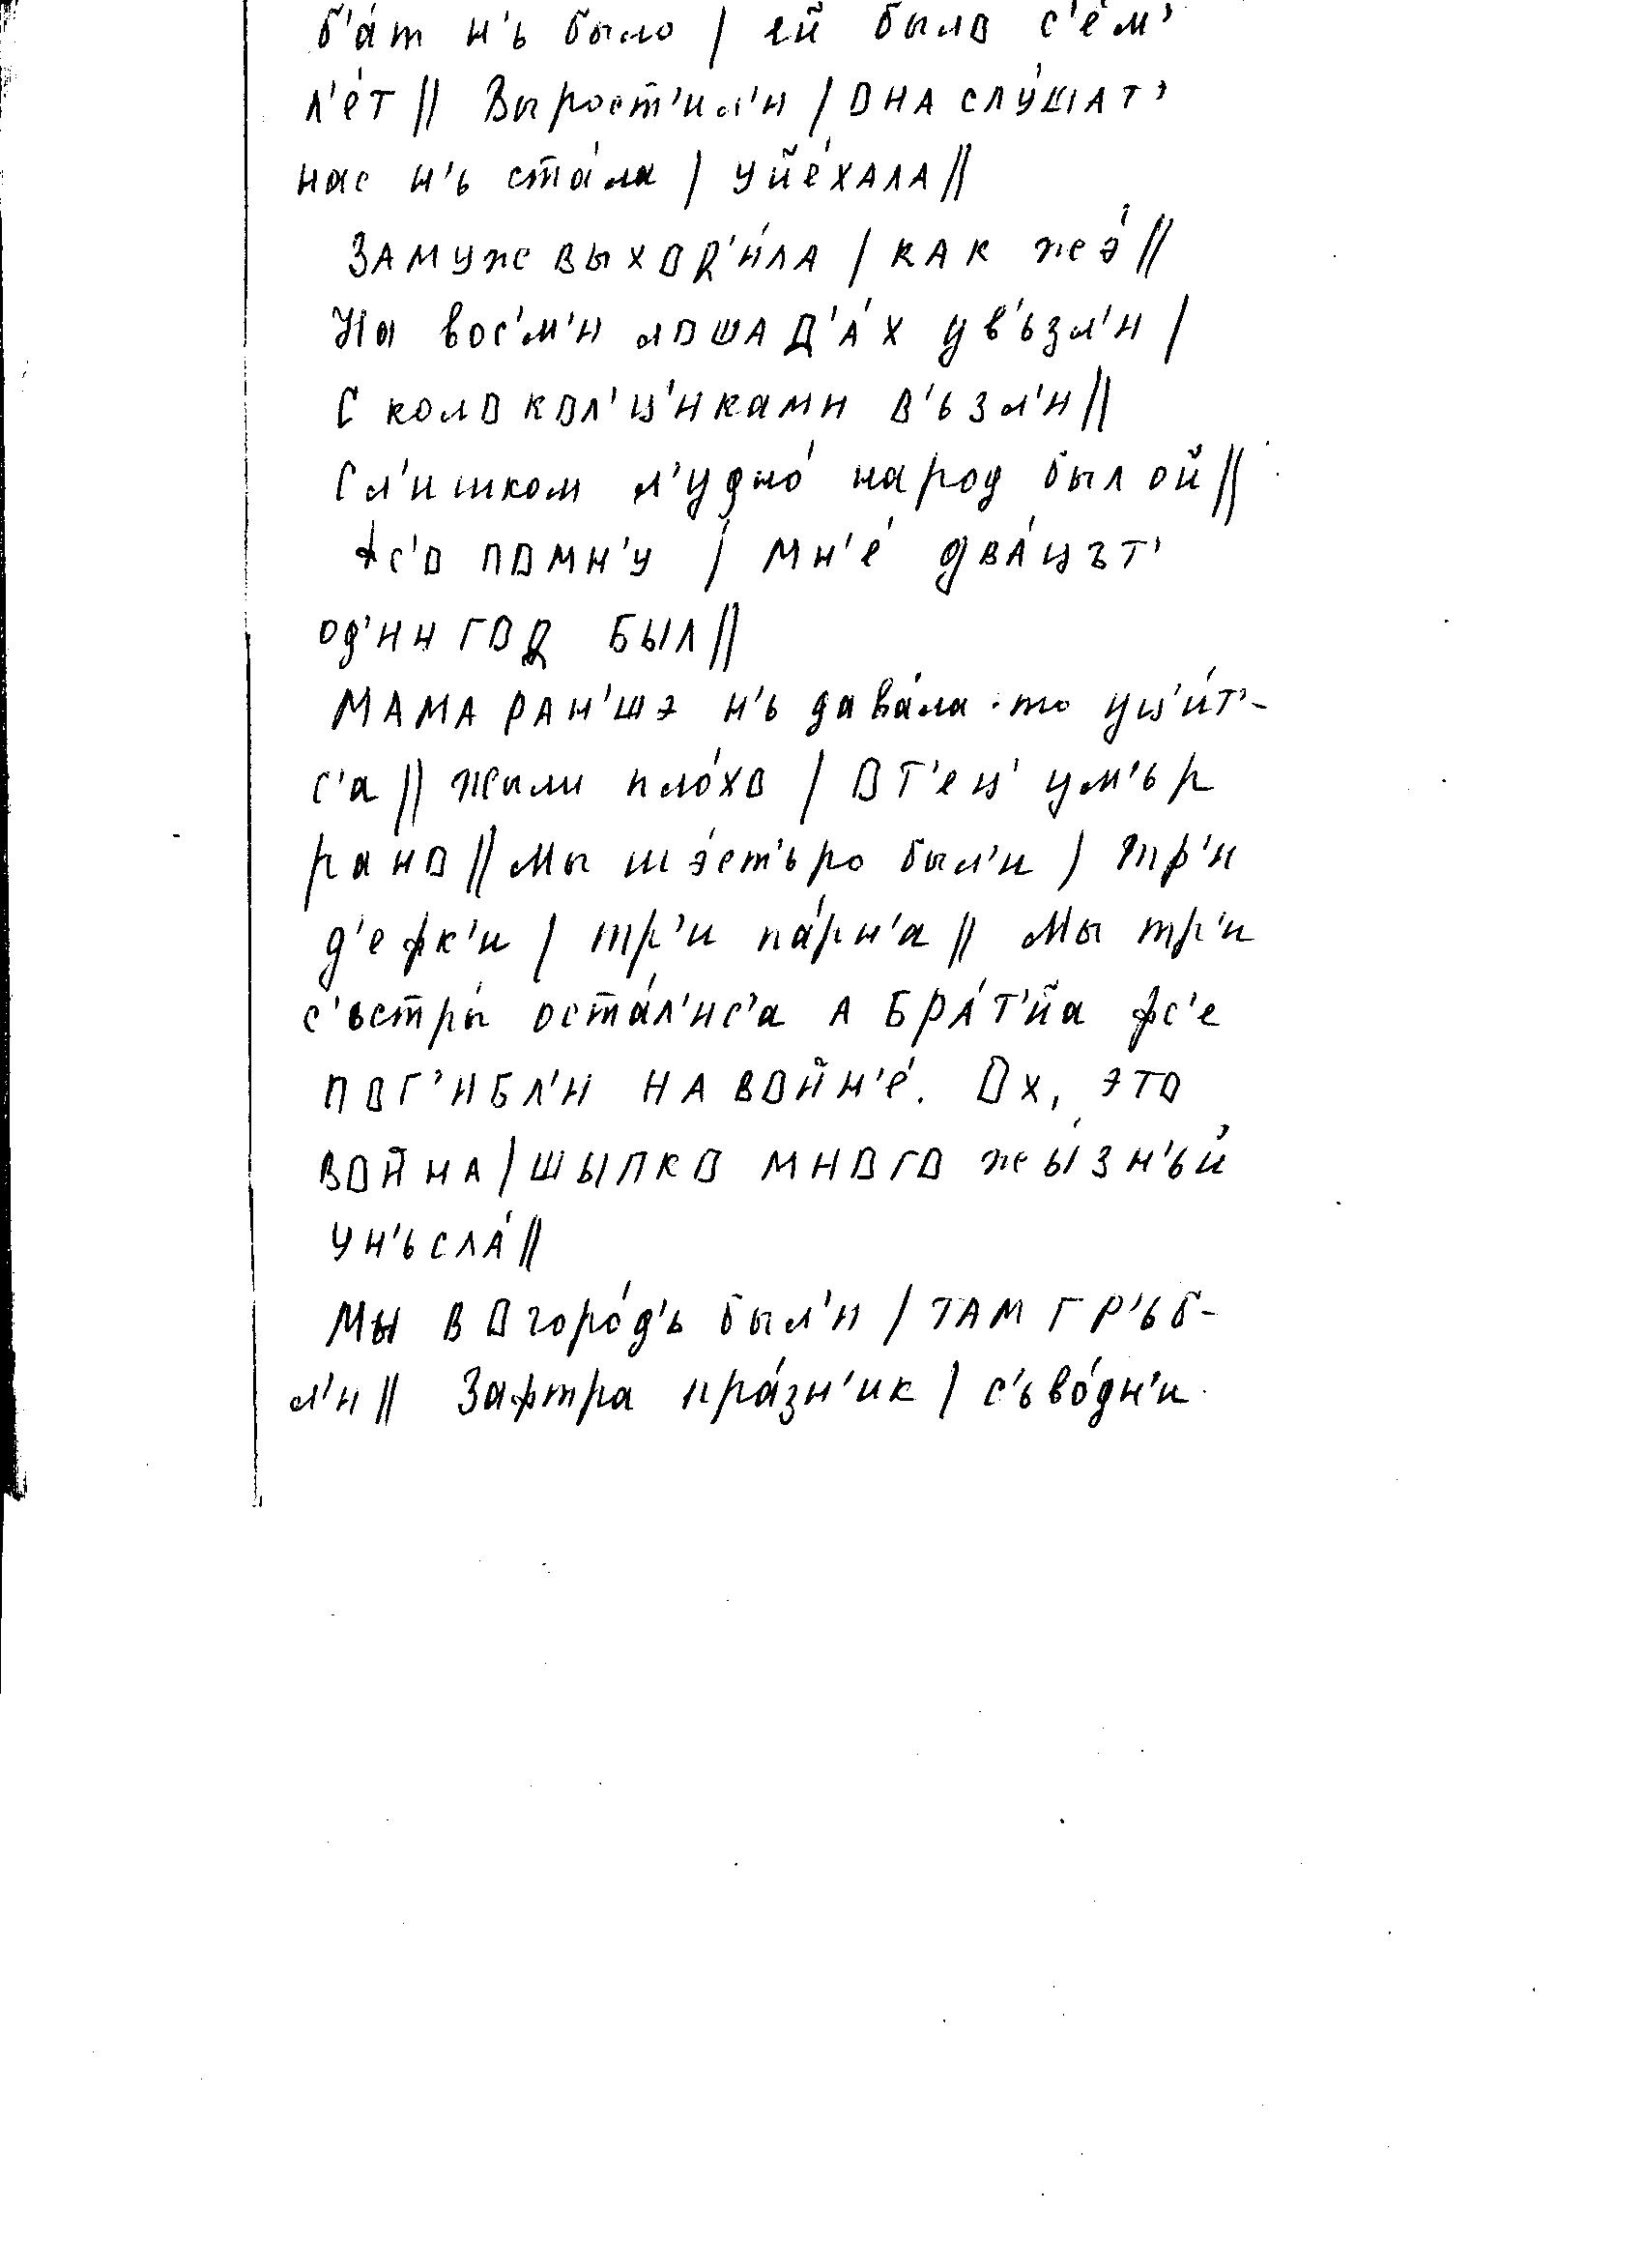 б'а́т н'ь было / ей было с'е́м'
л'е́т // Вырост'ил'и / она слу́шат'
нас н'ь ста́ла / уйе́хала //
замуж выход'и́ла / как же э́ //
На вос'м'и лошад'а́х ув'ьзл'и /
С колокол'ц'иками в'ьзл'и //
Сл'ишком л'удно́ народ был ой //
фс'о помн'у / мн'е́ два́цът'
од'ин год был //
Мама ран'шэ н'ь дава́ла-то уц'и́т'-
с'а // жыли пло́хо / от'ец' ум'ьр
рано // Мы шэ́ст'ьро был'и / тр'и
д'ефк'и / тр'и па́рн'а // Мы тр'и
с'ьстры́ оста́л'ис'а а бра́т'йа фс'е
пог'ибл'и на войн'е́. Ох, это
война / шыпко много жы́зн'ьй
ун'ьсла́ //
Мы в огоро́д'ь был'и / там гр'ьб-
л'и // Зафтра пра́зн'ик / с'ьво́дн'и